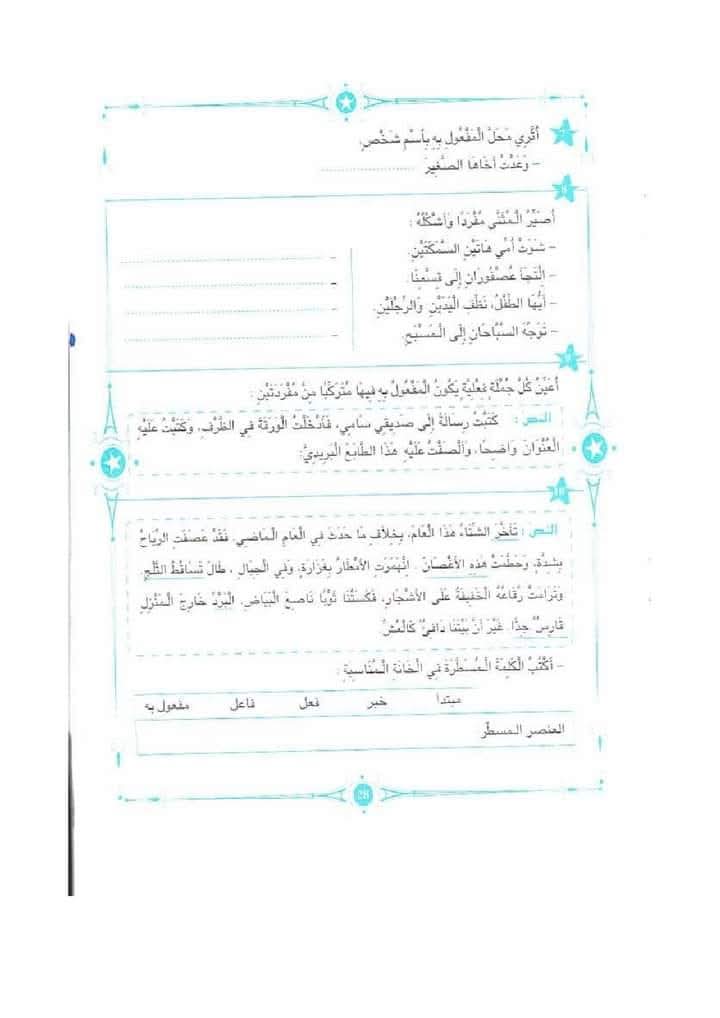 7 أُثْرِي مَحَلَّ الْمَفْعُولِ بِهِ بِاِسْمِ شَخْصٍ:
– وَعَدْتُ أَخَاهَا الصَّغِيرَ ......................
8
أُصَيِّرُ الْمُثَنَّى مُفْرَدًا وَأَشْكُلُهُ :
– شَوَتْ أُمِّي هَاتَيْنِ السَّمَكَتَيْنِ. – ......................
– اِلْتَجَأَ عُصْفُورَانِ إِلَى قِسْمِنَا. – ......................
– أَيُّهَا الطِّفْلُ، نَظِّفِ الْيَدَيْنِ وَالرِّجْلَيْنِ. – ......................
– تَوَجَّهَ السَّبَّاحَانِ إِلَى الْمَسْبَحِ. – ......................
9
أُعَيِّنُ كُلَّ جُمْلَةٍ فِعْلِيَّةٍ يَكُونُ الْمَفْعُولُ بِهِ فِيهَا مُتَرَكِّبًا مِنْ مُفْرَدَتَيْنِ :
النص : كَتَبْتُ رِسَالَةً إِلَى صَدِيقِي سَامِي، فَأَدْخَلْتُ الْوَرَقَةَ فِي الظَّرْفِ، وَكَتَبْتُ عَلَيْهِ
الْعُنْوَانَ وَاضِحًا، وَأَلْصَقْتُ عَلَيْهِ هَذَا الطَّابَعَ الْبَرِيدِيَّ:
10
النص : تَأَخَّرَ الشِّتَاءُ هَذَا الْعَامَ، بِخِلَافِ مَا حَدَثَ فِي الْعَامِ الْمَاضِي. فَقَدْ عَصَفَتِ الرِّيَاحُ
بِشِدَّةٍ، وَحَطَّمَتْ هَذِهِ الْأَغْصَانَ . اِنْهَمَرَتِ الْأَمْطَارُ بِغَزَارَةٍ، وَفِي الْجِبَالِ ، طَالَ تَسَاقُطُ الثَّلْجِ.
وَتَرَامَتْ رِقَاعُهُ الْخَفِيفَةُ عَلَى الْأَشْجَارِ، فَكَسَتْهَا ثَوْبًا نَاصِعَ الْبَيَاضِ. الْبَرْدُ خَارِجَ الْمَنْزِلِ
قَارِسٌ جِدًّا. غَيْرَ أَنَّ بَيْتَنَا دَافِئٌ كَالْعُشِّ.
– أَكْتُبُ الْكَلِمَةَ الْمُسَطَّرَةَ فِي الْخَانَةِ الْمُنَاسِبَةِ :
مبتدأ خبر فعل فاعل مفعول به
العنصر المسطّر
28